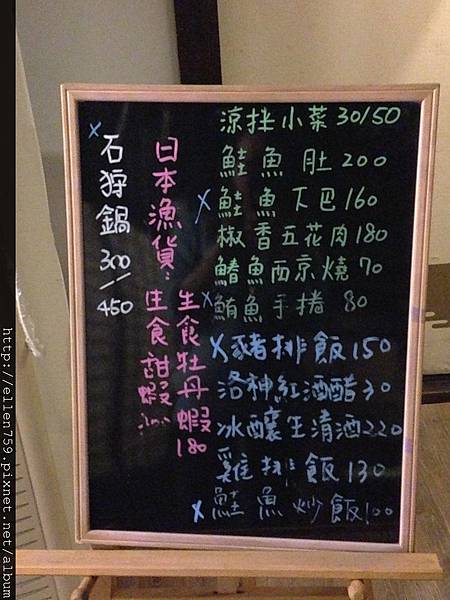 涼拌小菜 30/50
鮭魚肚 200
x 鮭魚下巴 160
椒香五花肉 180
鰆魚西京燒 70
x 鮪魚手捲 80
x 豬排飯 150
洛神紅酒醋 30
冰釀生清酒 220
雞排飯 130
x 鮭魚炒飯 100
日本漁貨:
生食牡丹蝦 180
生食甜蝦
x 石狩鍋 300/450
http://ellen759.pixnet.net/album